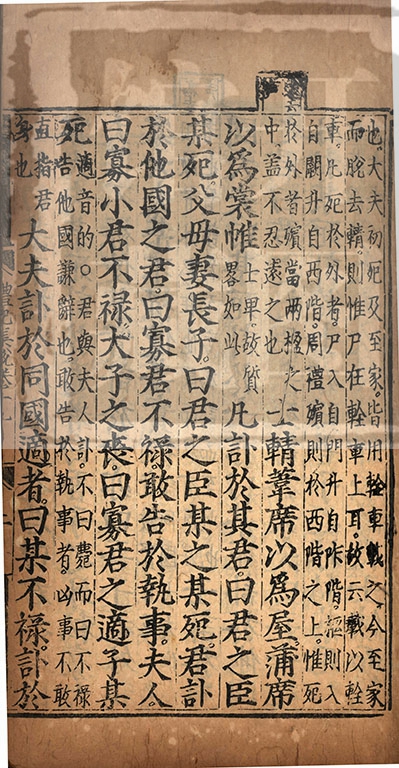 也大夫初死及至家皆用輇車載之今至家
而脫去輤則惟尸在輇車上耳故云載以輇
車凡死於外者尸入自門升自阼階柩則入
自闕升自西階周禮殯則於西階之上惟死
於外者殯當兩楹之
中蓋不忍遠之也
士輤葦席以為屋蒲席
以為裳帷
士卑故質
畧如此
凡訃於其君曰君之臣
某死父母妻長子曰君之臣某之某死君訃
於他國之君曰寡君不祿敢告於執事夫人
曰寡小君不祿大子之喪曰寡君之適子某
死
適音的○君與夫人訃不曰薨而曰不祿
告他國謙辭也敢告於執事者凶事不敢
直指君
身也
大夫訃於同國適者曰某不祿訃於